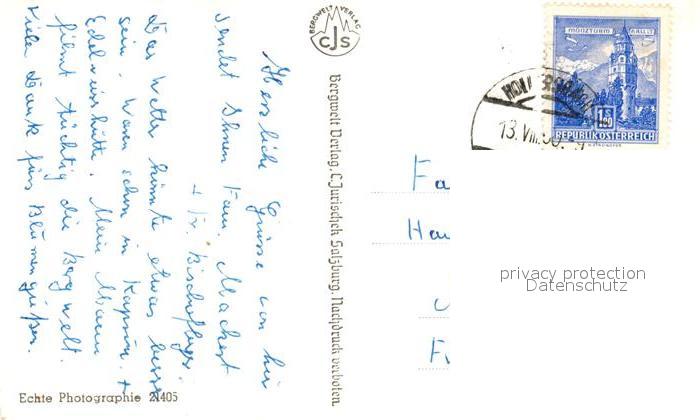 Herzliche Grüsse von hier
sendet Ihnen Fam. Machert
+ Fr. Bischofberg.
Das Wetter könnte etwas besser
sein. Waren schon in Kaprun. +
Edelweisshütte. Mein Mann
filmt tüchtig die Bergwelt.
Viele Dank fürs Blumengießen.
Echte Photographie 21405
BERGWELT VERLAG
CJS
Bergwelt Verlag, C. Jurischek Salzburg. Nachdruck verboten.
MÜNZTURM HALL I.T.
1.80
REPUBLIK ÖSTERREICH
13. VIII.
Fa
Ha
F
privacy protection
Datenschutz